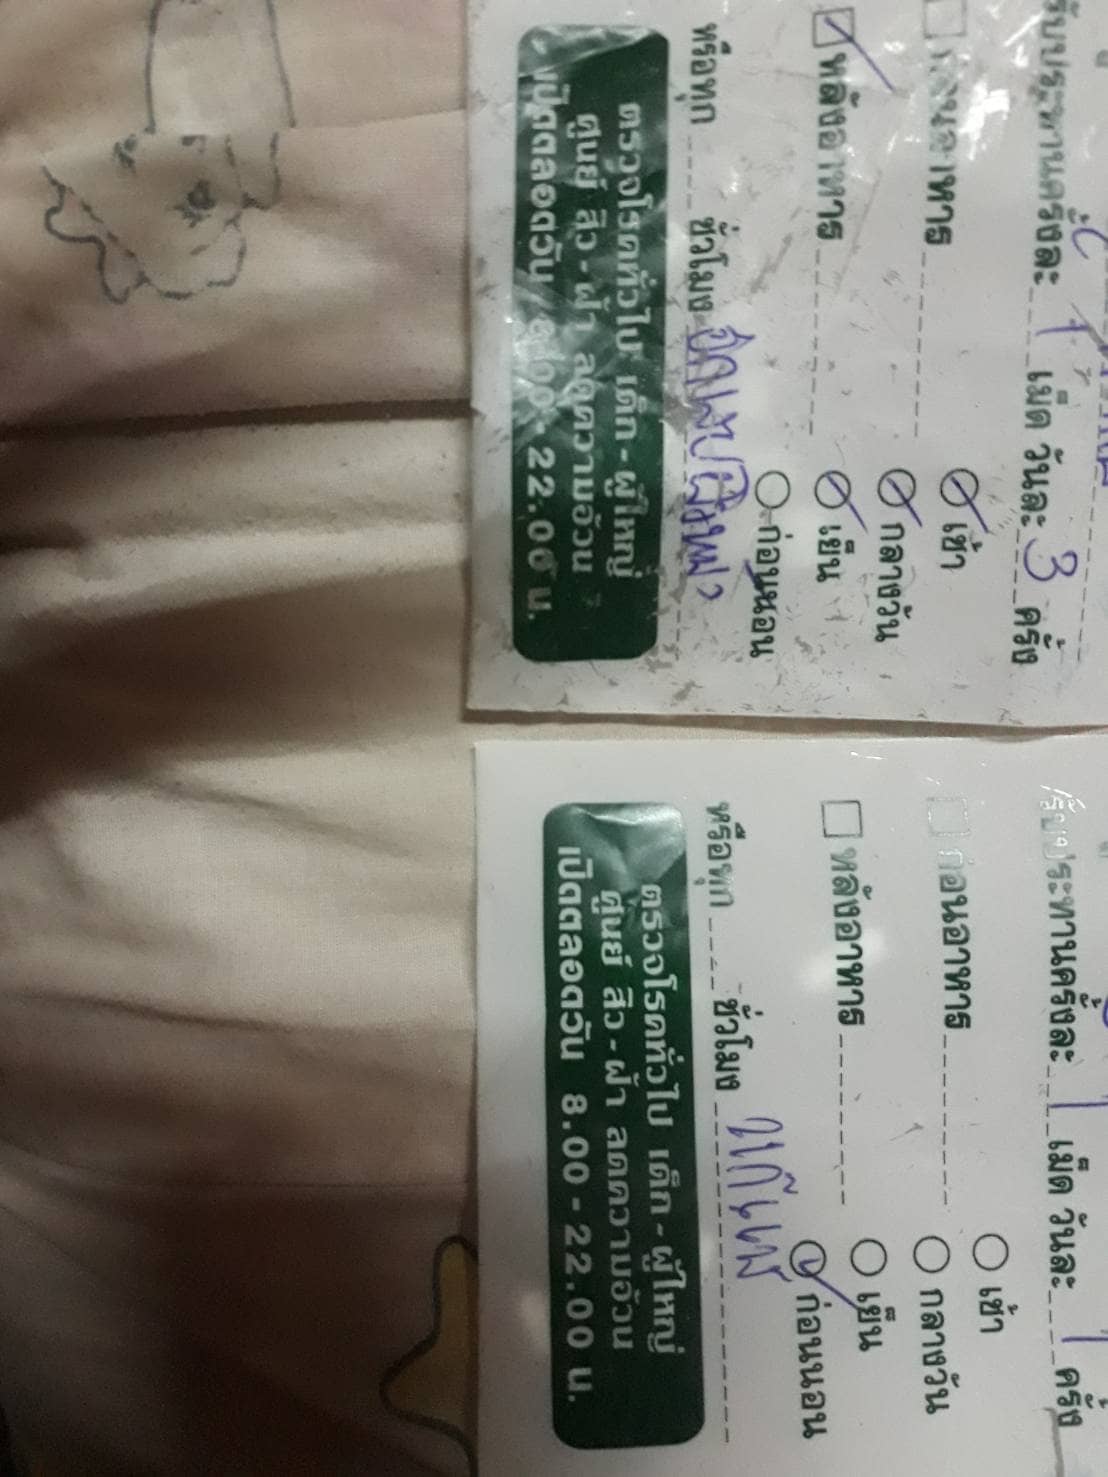 รับประทานครั้งละ 1 เม็ด วันละ 3 ครั้ง
ก่อนอาหาร เช้า
หลังอาหาร กลางวัน
เย็น
ก่อนนอน
หรือทุก ชั่วโมง
ตรวจโรคทั่วไป เด็ก - ผู้ใหญ่
ศูนย์ สิว - ฝ้า ลดความอ้วน
เปิดตลอดวัน 8.00 - 22.00 น.
รับประทานครั้งละ 1 เม็ด วันละ 1 ครั้ง
ก่อนอาหาร เช้า
หลังอาหาร กลางวัน
เย็น
ก่อนนอน
หรือทุก ชั่วโมง แก้แพ้
ตรวจโรคทั่วไป เด็ก - ผู้ใหญ่
ศูนย์ สิว - ฝ้า ลดความอ้วน
เปิดตลอดวัน 8.00 - 22.00 น.